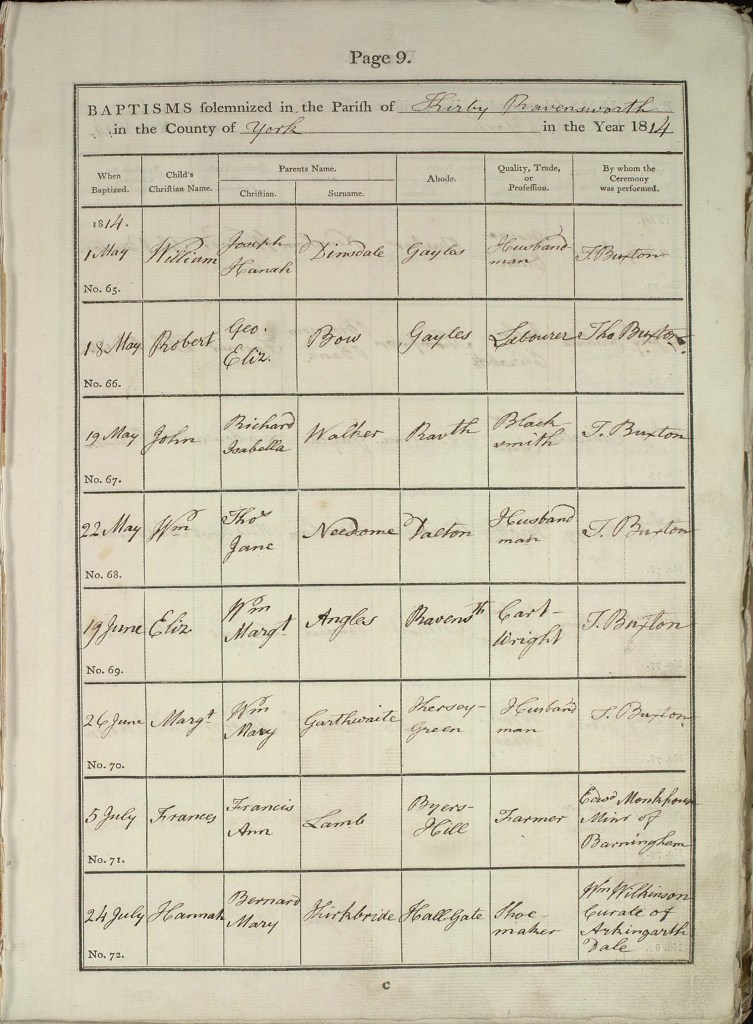 Page 9.
BAPTISMS solemnized in the Parish of Kirby Ravensworth
in the County of York in the Year 1814
When Baptized.
Child's Christian Name.
Parents Name.
Christian.
Surname.
Abode.
Quality, Trade, or Profession.
By whom the Ceremony was performed.
1814.
1 May
No. 65.
William
Joseph
Hanah
Dimsdale
Gayles
Husband
man
T. Buxton
18 May
No. 66.
Robert
Geo.
Eliz.
Bow
Gayles
Labourer
Tho Buxton
19 May
No. 67.
John
Richard
Isabella
Walker
Ravth
Black
smith
T. Buxton
22 May
No. 68.
Wm
Thos
Jane
Needome
Dalton
Husband
man
T. Buxton
19 June
No. 69.
Eliz
Wm
Margt
Angles
Ravensth
Cart-
Wright
T. Buxton
26 June
No. 70.
Margt
Wm
Mary
Garthwaite
Kersey-
Green
Husband
man
T. Buxton
5 July
No. 71.
Frances
Francis
Ann
Lamb
Byers-
Hill
Farmer
Edwd Monkhouse
Minr of
Barningham
24 July
No. 72.
Hannah
Bernard
Mary
Kirkbride
Hall Gate
Shoe-
maker
Wm Wilkinson
Curate of
Arkingarth
Dale
C